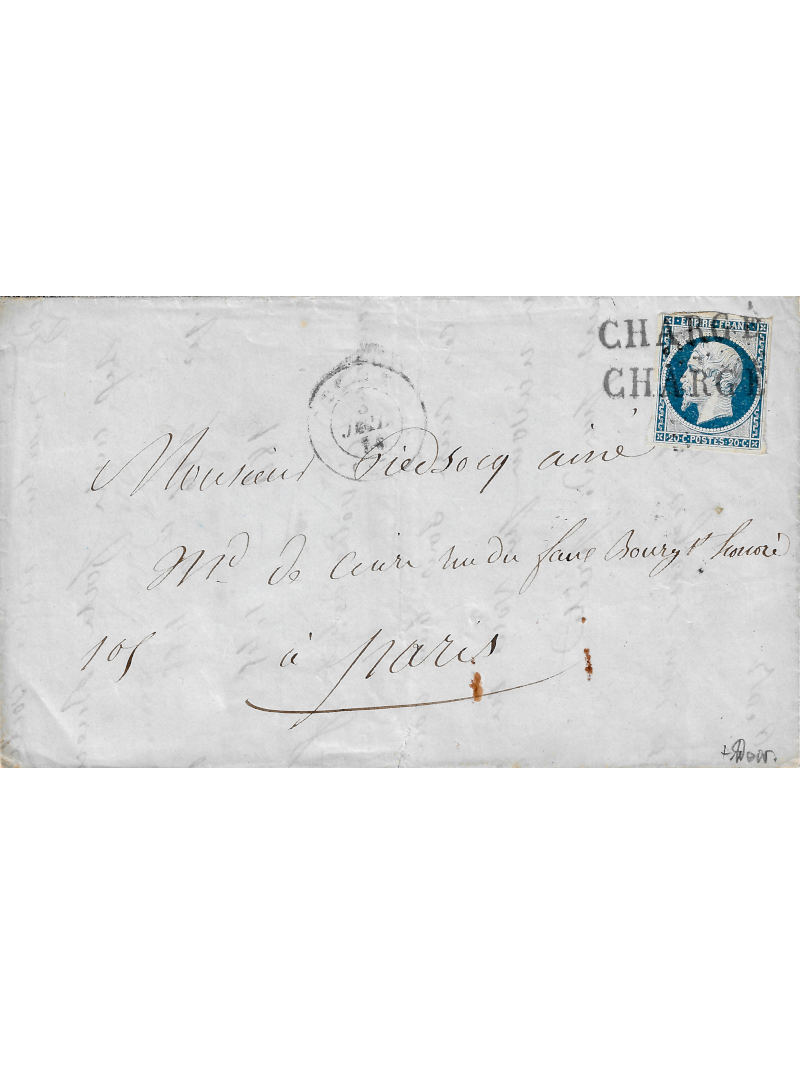 CHARGÉ
CHARGÉ
EMPIRE·FRAN
20·C·POSTES·20·C
3
JUIL
Monsieur Piedsocq ainé
Md. de Cuir rue du faux Bourg st honoré
105
à paris